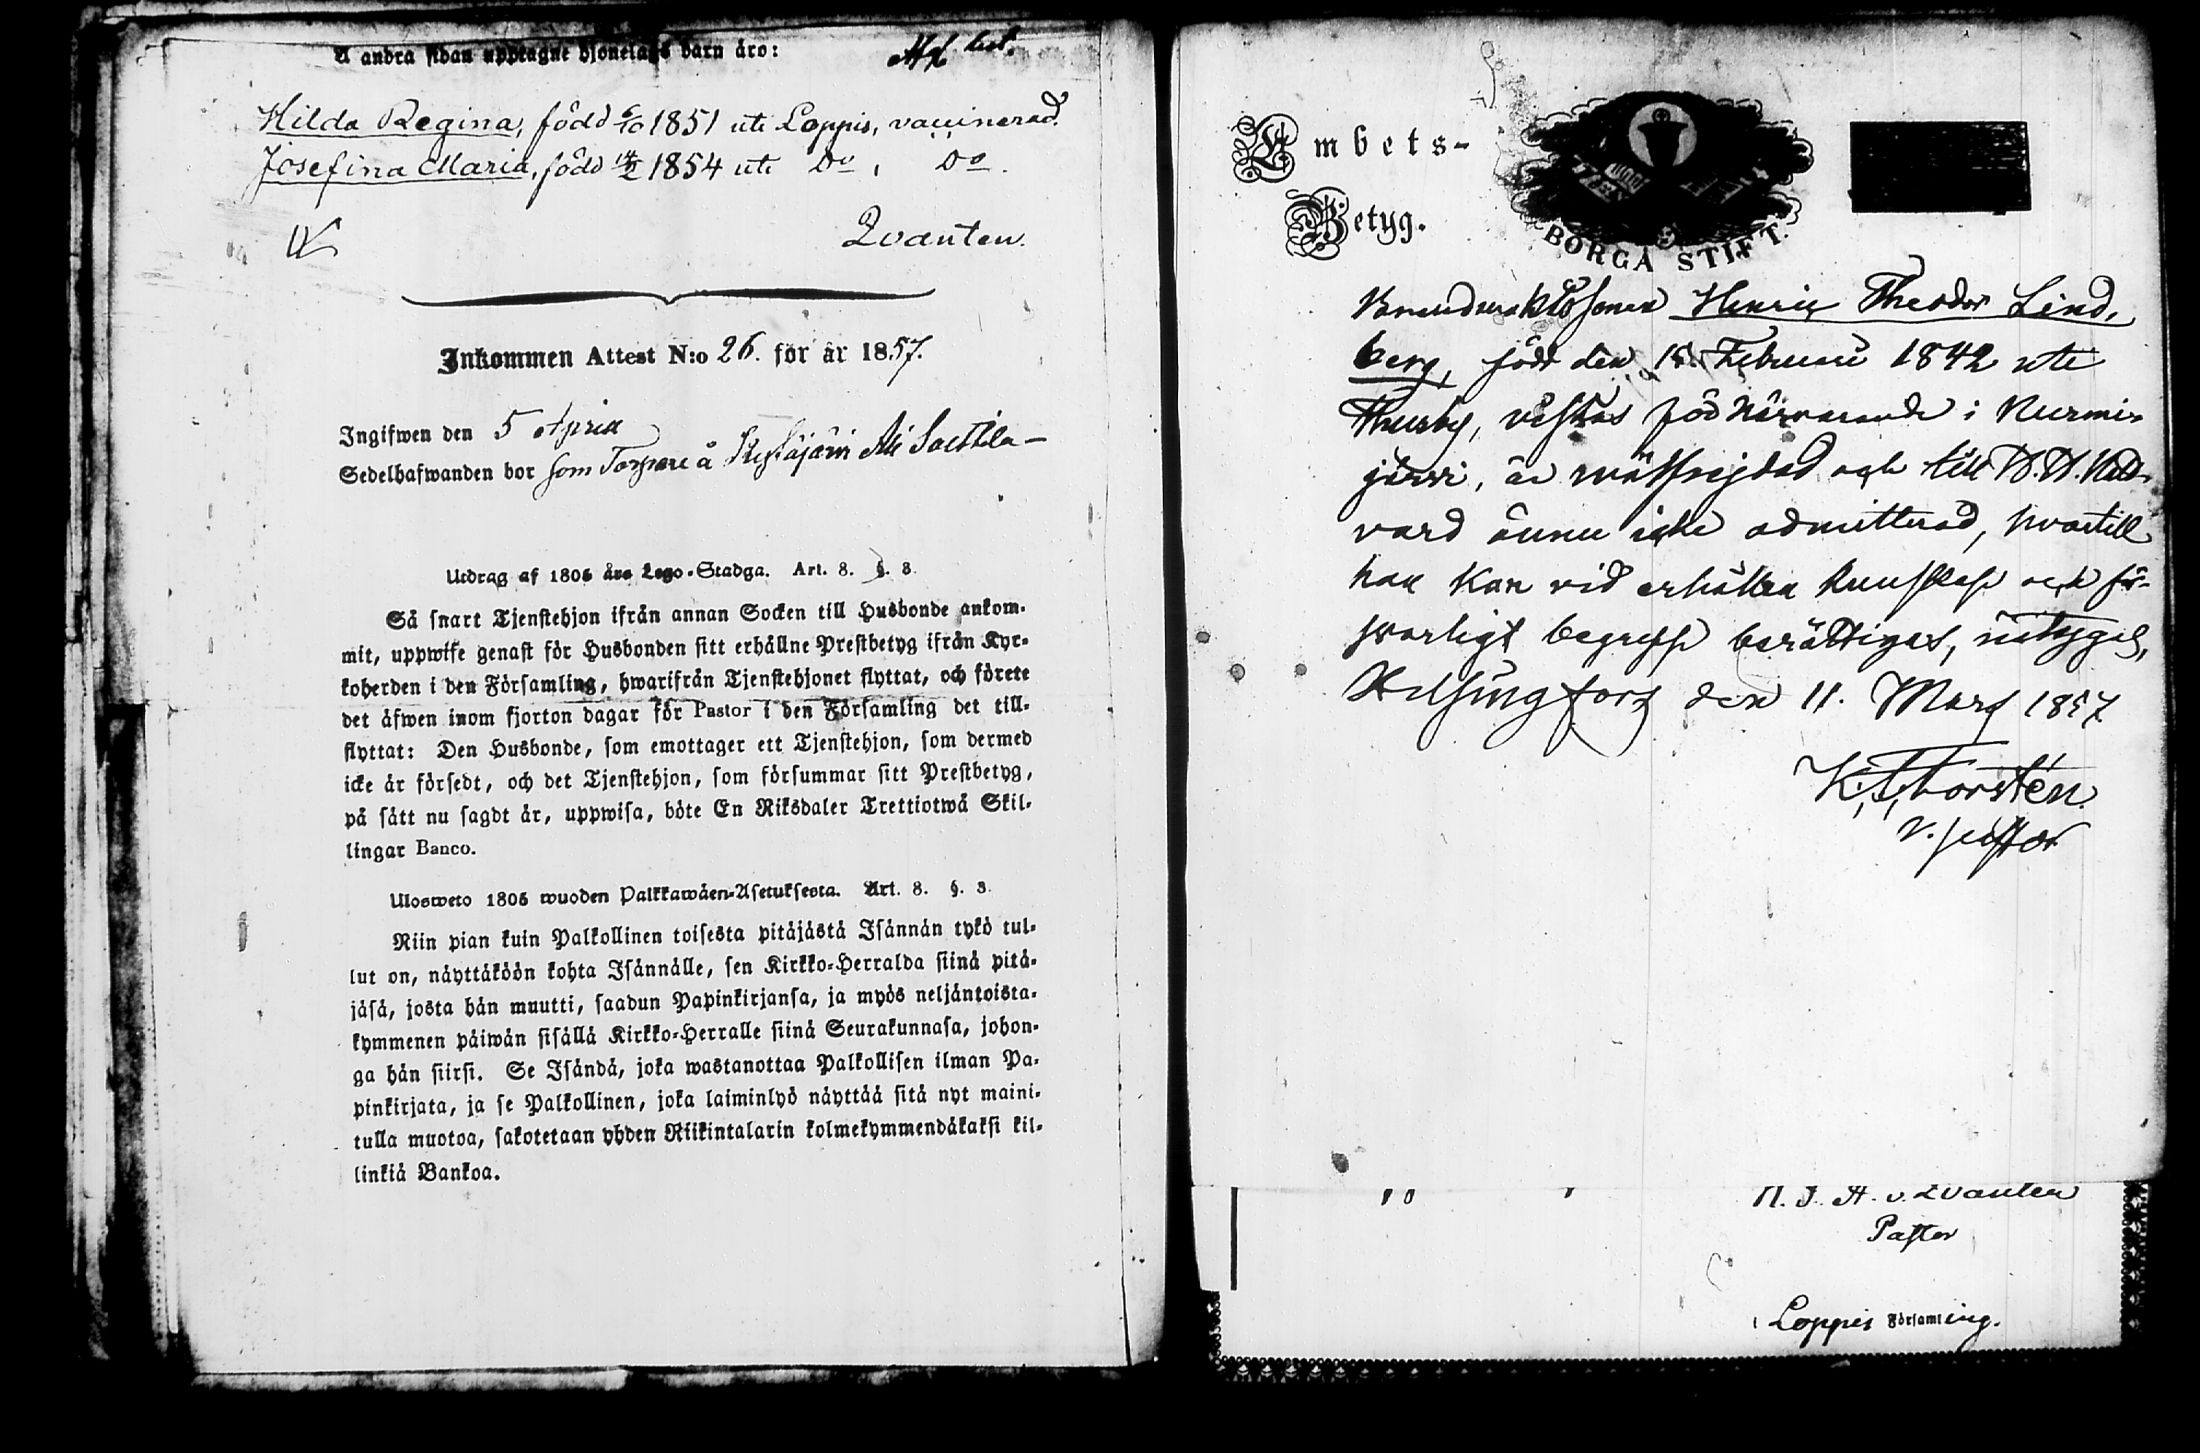 Å andra sidan upptagne hjonelags barn äro:
Hilda Regina, född 6/10 1851 uti Loppis, vaccinerad.
Josefina Maria, född 14/2 1854 uti Do, Do.
Qvanten.
Inkommen Attest N:o 26. för år 1857.
Ingifwen den 5 April
Sedelhafwanden bor som Torpare å
Utdrag af 1805 års Lego-Stadga. Art. 8. §. 3.
Så snart Tjenstehjon ifrån annan Socken till Husbonde ankom-
mit, uppwise genast för Husbonden sitt erhållne Prestbetyg ifrån Kyr-
koherden i den Församling, hwarifrån Tjenstehjonet flyttat, och förete
det äfwen inom fjorton dagar för Pastor i den Församling det till-
flyttat: Den Husbonde, som emottager ett Tjenstehjon, som dermed
icke är försedt, och det Tjenstehjon, som försummar sitt Prestbetyg,
på sätt nu sagdt är, uppwisa, böte En Riksdaler Trettiotwå Skil-
lingar Banco.
Ulosweto 1805 wuoden Palkkawäen-Asetuksesta. Art. 8. §. 3.
Niin pian kuin Palkollinen toisesta pitäjästä Isännän tykö tul-
lut on, näyttäköön kohta Isännälle, sen Kirkko-Herralda siinä pitä-
jäsä, josta hän muutti, saadun Papinkirjansa, ja myös neljäntoista-
kymmenen päiwän sisällä Kirkko-Herralle siinä Seurakunnasa, johon-
ga hän siirsi. Se Isändä, joka wastanottaa Palkollisen ilman Pa-
pinkirjata, ja se Palkollinen, joka laiminlyö näyttää sitä nyt maini-
tulla muotoa, sakotetaan yhden Riikintalarin kolmekymmendäkaksi kil-
linkiä Bankoa.
Embets-
Betyg.
BORGÅ STIFT.
Henric Theodor Lind-
berg, född den 15 Februari 1842 uti
Thusby, vistas för närvarande i Nurmi-
järvi, är och till H. H. Natt-
vard ännu icke admitterad, hvartill
han kan vid erhållen kunskap och för-
svarligt begrepp berättigas, intygas,
Helsingfors den 11. Mars 1857
K. J. Forstén
v. pastor
N. J. A. v. Qvanten
Pastor
i Loppis Församling.